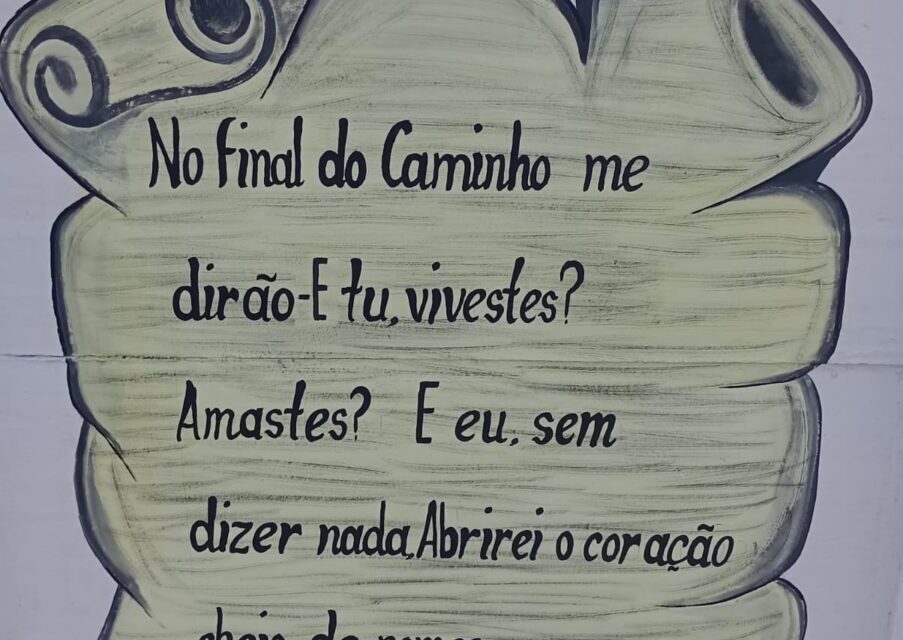 No Final do Caminho me
dirão-E tu, vivestes?
Amastes? E eu, sem
dizer nada, Abrirei o coração
cheio de nomes